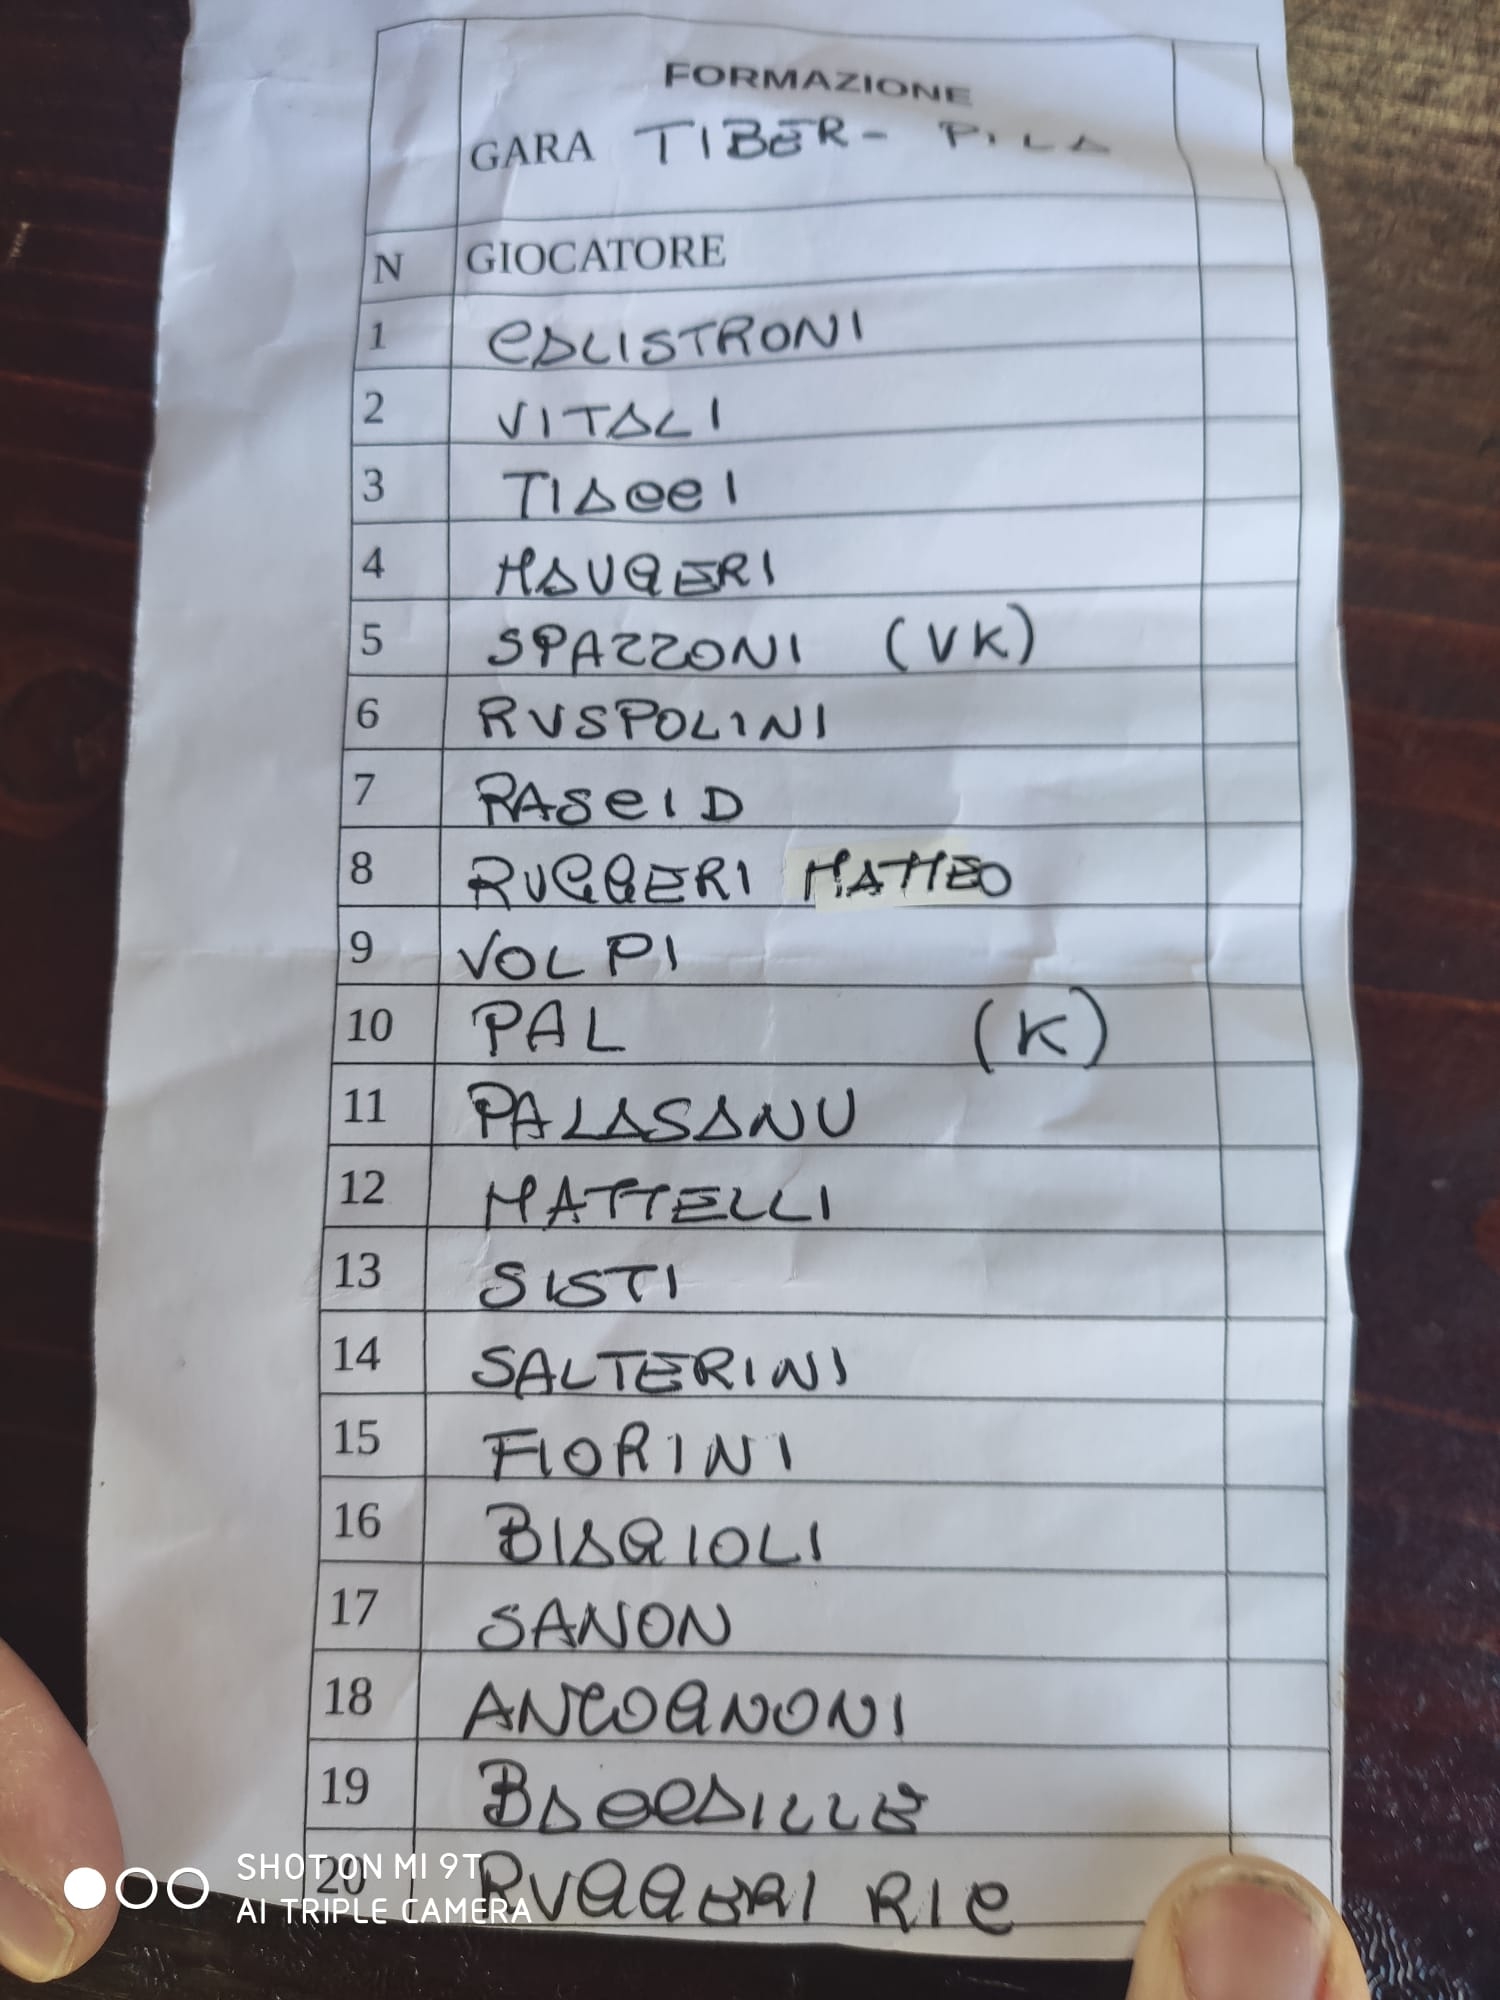 FORMAZIONE
GARA TIBER - PILA
N GIOCATORE
1 CALISTRONI
2 VITALI
3 TIACCI
4 MAUGERI
5 SPAZZONI (VK)
6 RUSPOLINI
7 RASCID
8 RUGGERI MATTEO
9 VOLPI
10 PAL (K)
11 PALASANU
12 MATTELLI
13 SISTI
14 SALTERINI
15 FIORINI
16 BIAGIOLI
17 SANON
18 ANCOGNONI
19 BACCAILLE
20 RUGGERI RIC
SHOT ON MI 9T
AI TRIPLE CAMERA